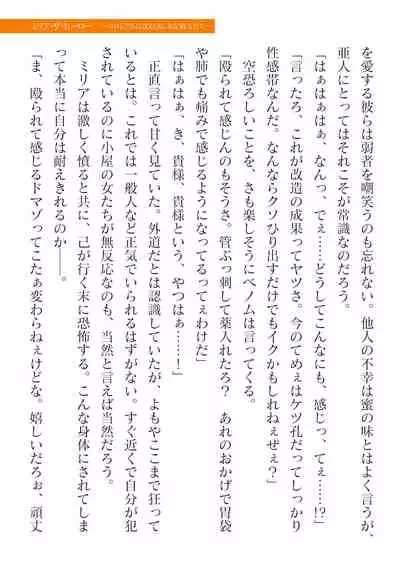 ミリア・ザ・ヒーロー
を愛する彼らは弱者を嘲笑うのも忘れない。他人の不幸は蜜の味とはよく言うが、
亜人にとってはそれこそが常識なのだろう。
「はぁはぁはぁ、なんっ、でぇ……どうしてこんなにも、感じっ、てぇ……!?」
「言ったろ、これが改造の成果ってヤツさ。今のてめぇはケツ孔だってしっかり
性感帯なんだ。なんならクソひり出すだけでもイクかもしれねぇぜぇ？」
空恐ろしいことを、さも楽しそうにベノムは言ってくる。
「殴られて感じんのもそうさ。管ぶっ刺して薬入れたろ？　あれのおかげで胃袋
や肺でも痛みで感じるようになってるってぇわけだ」
「はぁはぁ、き、貴様、貴様という、やつはぁ……！」
正直言って甘く見ていた。外道だとは認識していたが、よもやここまで狂って
いるとは。これでは一般人など正気でいられるはずがない。すぐ近くで自分が犯
されているのに小屋の女たちが無反応なのも、当然と言えば当然だろう。
ミリアは激しく憤ると共に、己が行く末に恐怖する。こんな身体にされてしま
って本当に自分は耐えきれるのか――。
「ま、殴られて感じるドマゾってこたぁ変わらねぇけどな。嬉しいだろぉ、頑丈